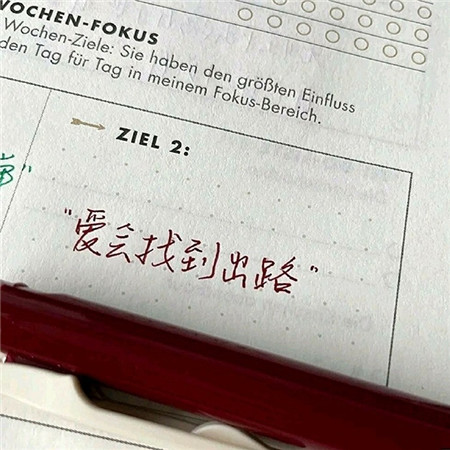 WOCHEN-FOKUS
Wochen-Ziele: Sie haben den größten Einfluss
den Tag für Tag in meinem Fokus-Bereich.
ZIEL 2:
"爱会找到出路"